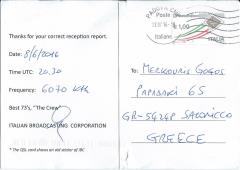 Thanks for your correct reception report.
Date: 8/6/2016
Time UTC: 20.30
Frequency: 6070 KHz
Best 73's, "The Crew"
ITALIAN BROADCASTING CORPORATION
* The QSL card shows an old winter of IBC
PADOVA
Poste
Italiane
€ 1,00
ITALIA
To: MERKOURIS GOGOS
PAPADAKI 65
GR-54248 SALONICCO
GREECE